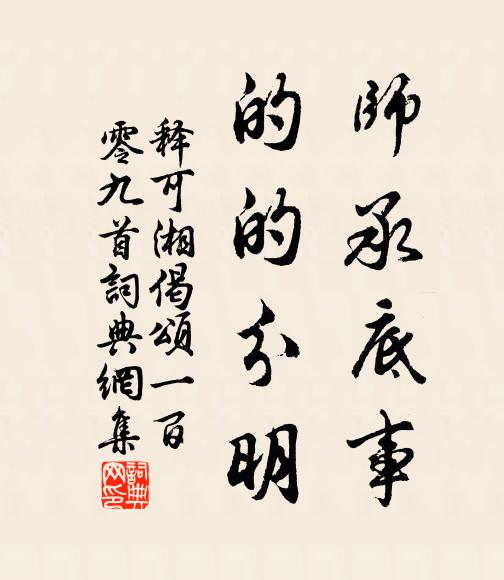 師承底事
的的分明
释可湘偈頌一百
零九首詞典網集
詞典网印